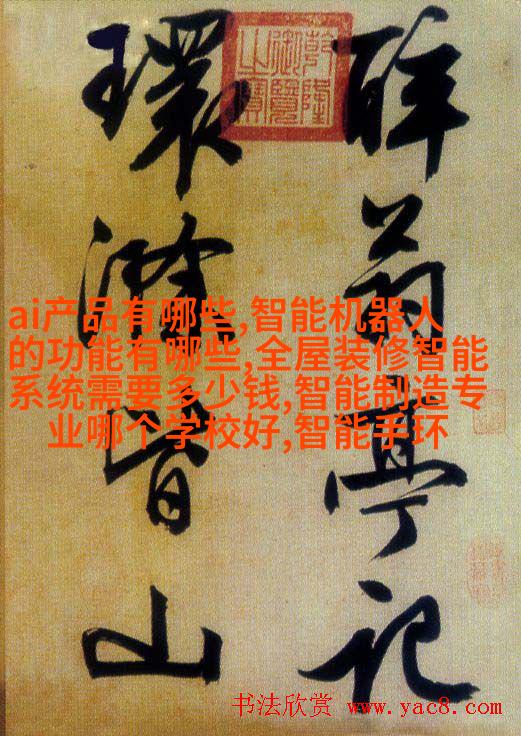 醉翁亭記
環滁皆山
乾隆
御覽
之寶
ai产品有哪些,智能机器人
的功能有哪些,全屋装修智能
系统需要多少钱,智能制造专
业哪个学校好,智能手环
书法欣赏 www.yac8.com